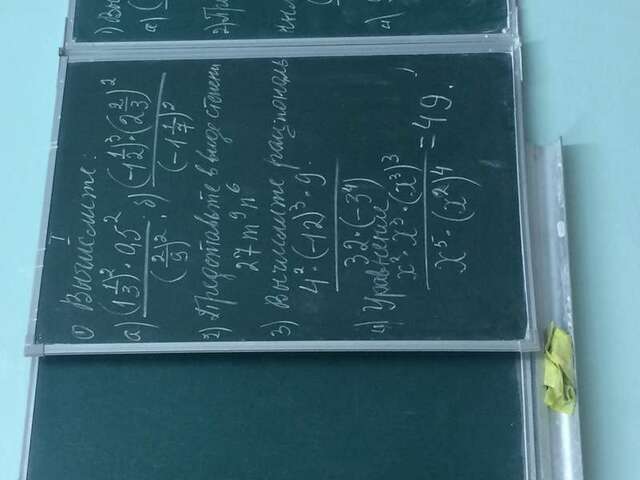 I
1) Вычислите:
а) (1 1/3)² · 0,5² / (2/9)² ; б) (-1 1/2)³ · (2 2/3)² / (-1 1/7)²
2) Представьте в виде степени
27m⁹n⁶
3) Вычислите рациональ
4² · (-12)³ · 9 / 32 · (-3⁴)
4) Уравнение
x² · x³ · (x³)³ / x⁵ · (x²)⁴ = 49.
1) Вы
а) (
2) Пре
ным
(
4)